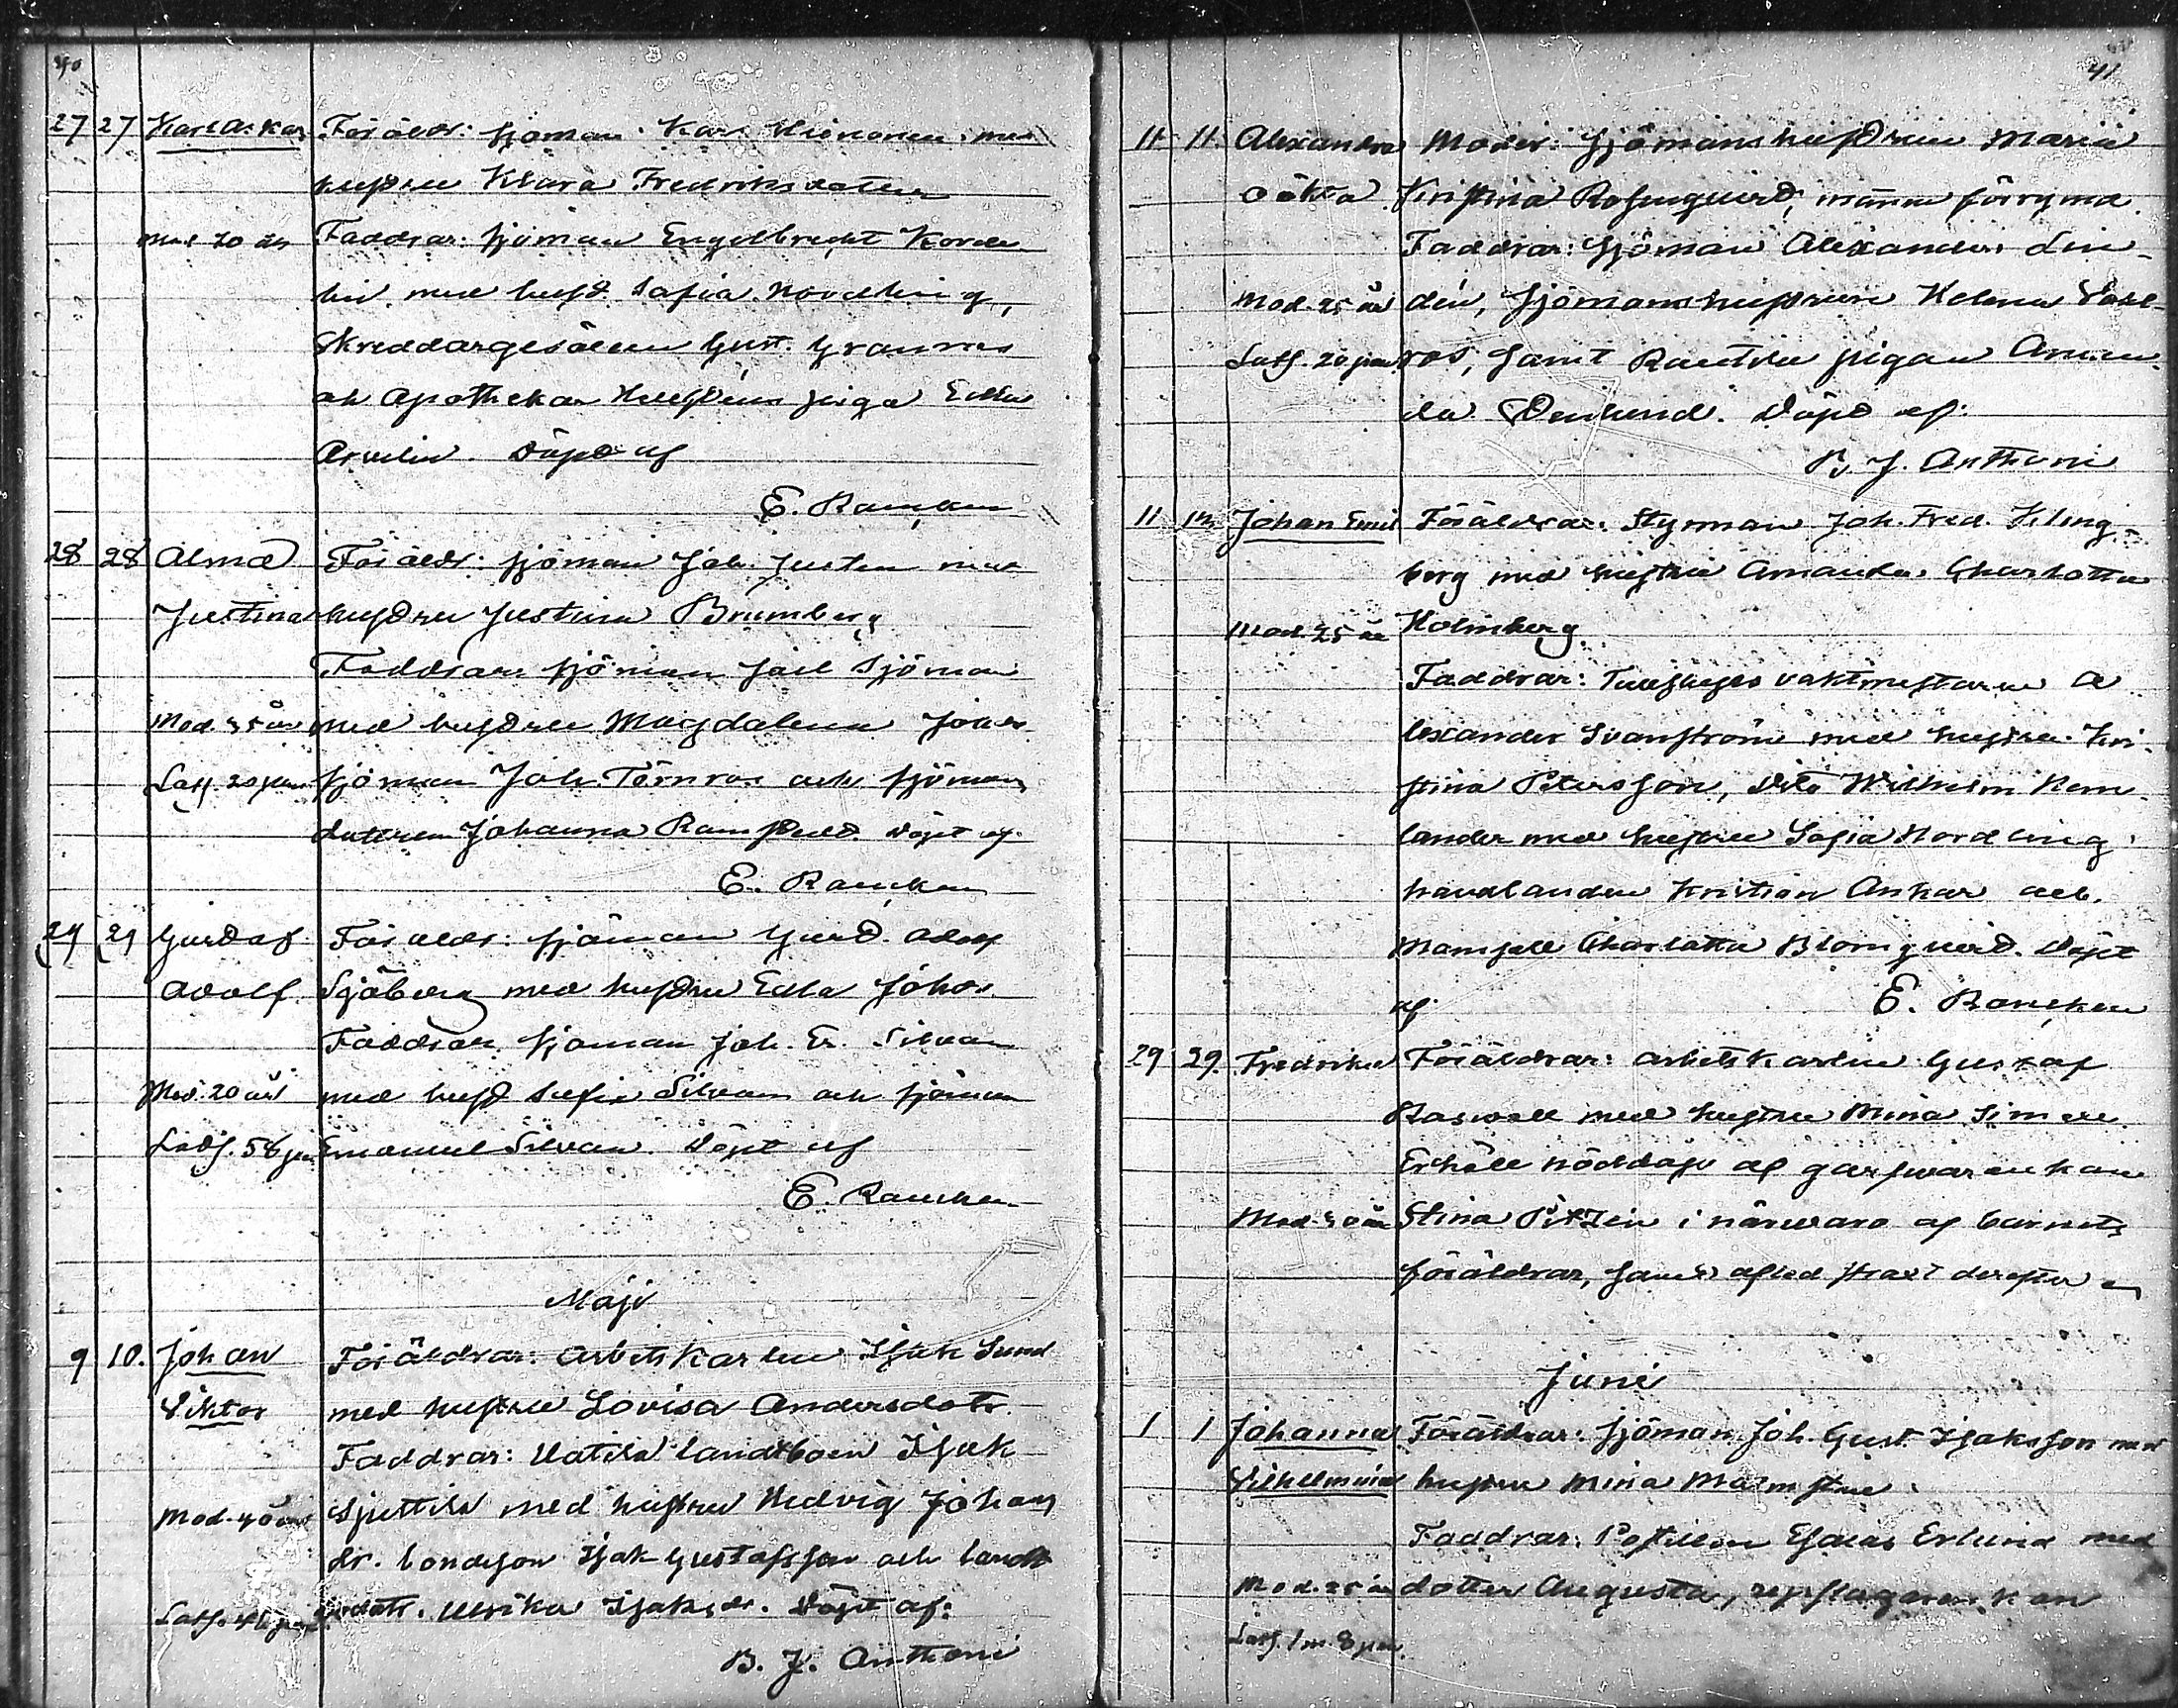 40
27 27 Karl Oskar Föräldr: sjöman Karl Hienonen med
hustru Klara Fredriksdotter
Mod. 20 år Faddrar: sjöman Engelbrecht Korde
lin med hust. Sofia Nordling,
Skreddargesällen Gust. Granroos
och Apothekar piga Edla
Arvelin. Döpt af
E. Rancken
28 28 Alma Föräldr: sjöman Joh. Justen med
Justina hustru Justina Brumberg
Faddrar: sjöman Joel Sjöman
Mod. 35 år med hustru Magdalena Johs
sjöman Joh. Törnroos och sjömans
dottren Johanna Ramstedt. Döpt af
E. Rancken
29 29 Gustaf Föräldr: sjöman Gust. Adolf
Adolf Sjöberg med hustru Edla Johs.
Faddrar sjöman Joh. Er. Silvan
Mod. 20 år med hust Sofia Silvan och sjöman
Emanuel Silvan. Döpt af
E. Rancken
Maji
9 10. Johan Föräldrar: Arbetskarlen Isak Sund
Viktor med hustru Lovisa Andersdotr.
Faddrar: Uotila landtboen Isak
Mod. 40 år Sjuttila med hustru Hedvig Johans
dr. bondeson Isak Gustafsson och landt
bodotr. Ulrika Isaksdr. Döpt af:
B. J. Anthoni
41
11 11. Alexandra Moder: Sjömanshustrun Maria
oäkta Kristina Rosenqvist, mannen förrymd.
Faddrar: Sjöman Alexander Lin-
Mod. 25 år dén, sjömanshustrun Helena Dahl-
ros, samt pigan Aman-
da Öhnlund. Döpt af:
B. J. Anthoni
11 Johan Emil Föräldrar: Styrman Joh. Fred. Kling-
berg med hustru Amanda Charlotta
Mod. 25 år Holmberg.
Faddrar: vaktmästaren A-
lexander Svanström med hustru Kri-
stina Petersson, Dito Wilhelm Ren-
lander med hustru Sofia Nordling
handlanden Kristian Ankar och
Mamsell Charlotta Blomqvist. Döpt
af E. Rancken
29 29. Fredrika Föräldrar: arbetskarlen Gustaf
Roswall med hustru Mina Simell.
Erhöll nöddop af garfvarenkan
Mod. 40 år Stina i närwaro af barnets
föräldrar, samt afled straxt derefter
Juni
1 1 Johanna Föräldrar: sjöman Joh. Gust. Isaksson med
Vilhelmina hustru Mina Malmsten.
Faddrar: Postiljon Esaias Erlund med
Mod. 25 år dotter Augusta, repslagarenkan